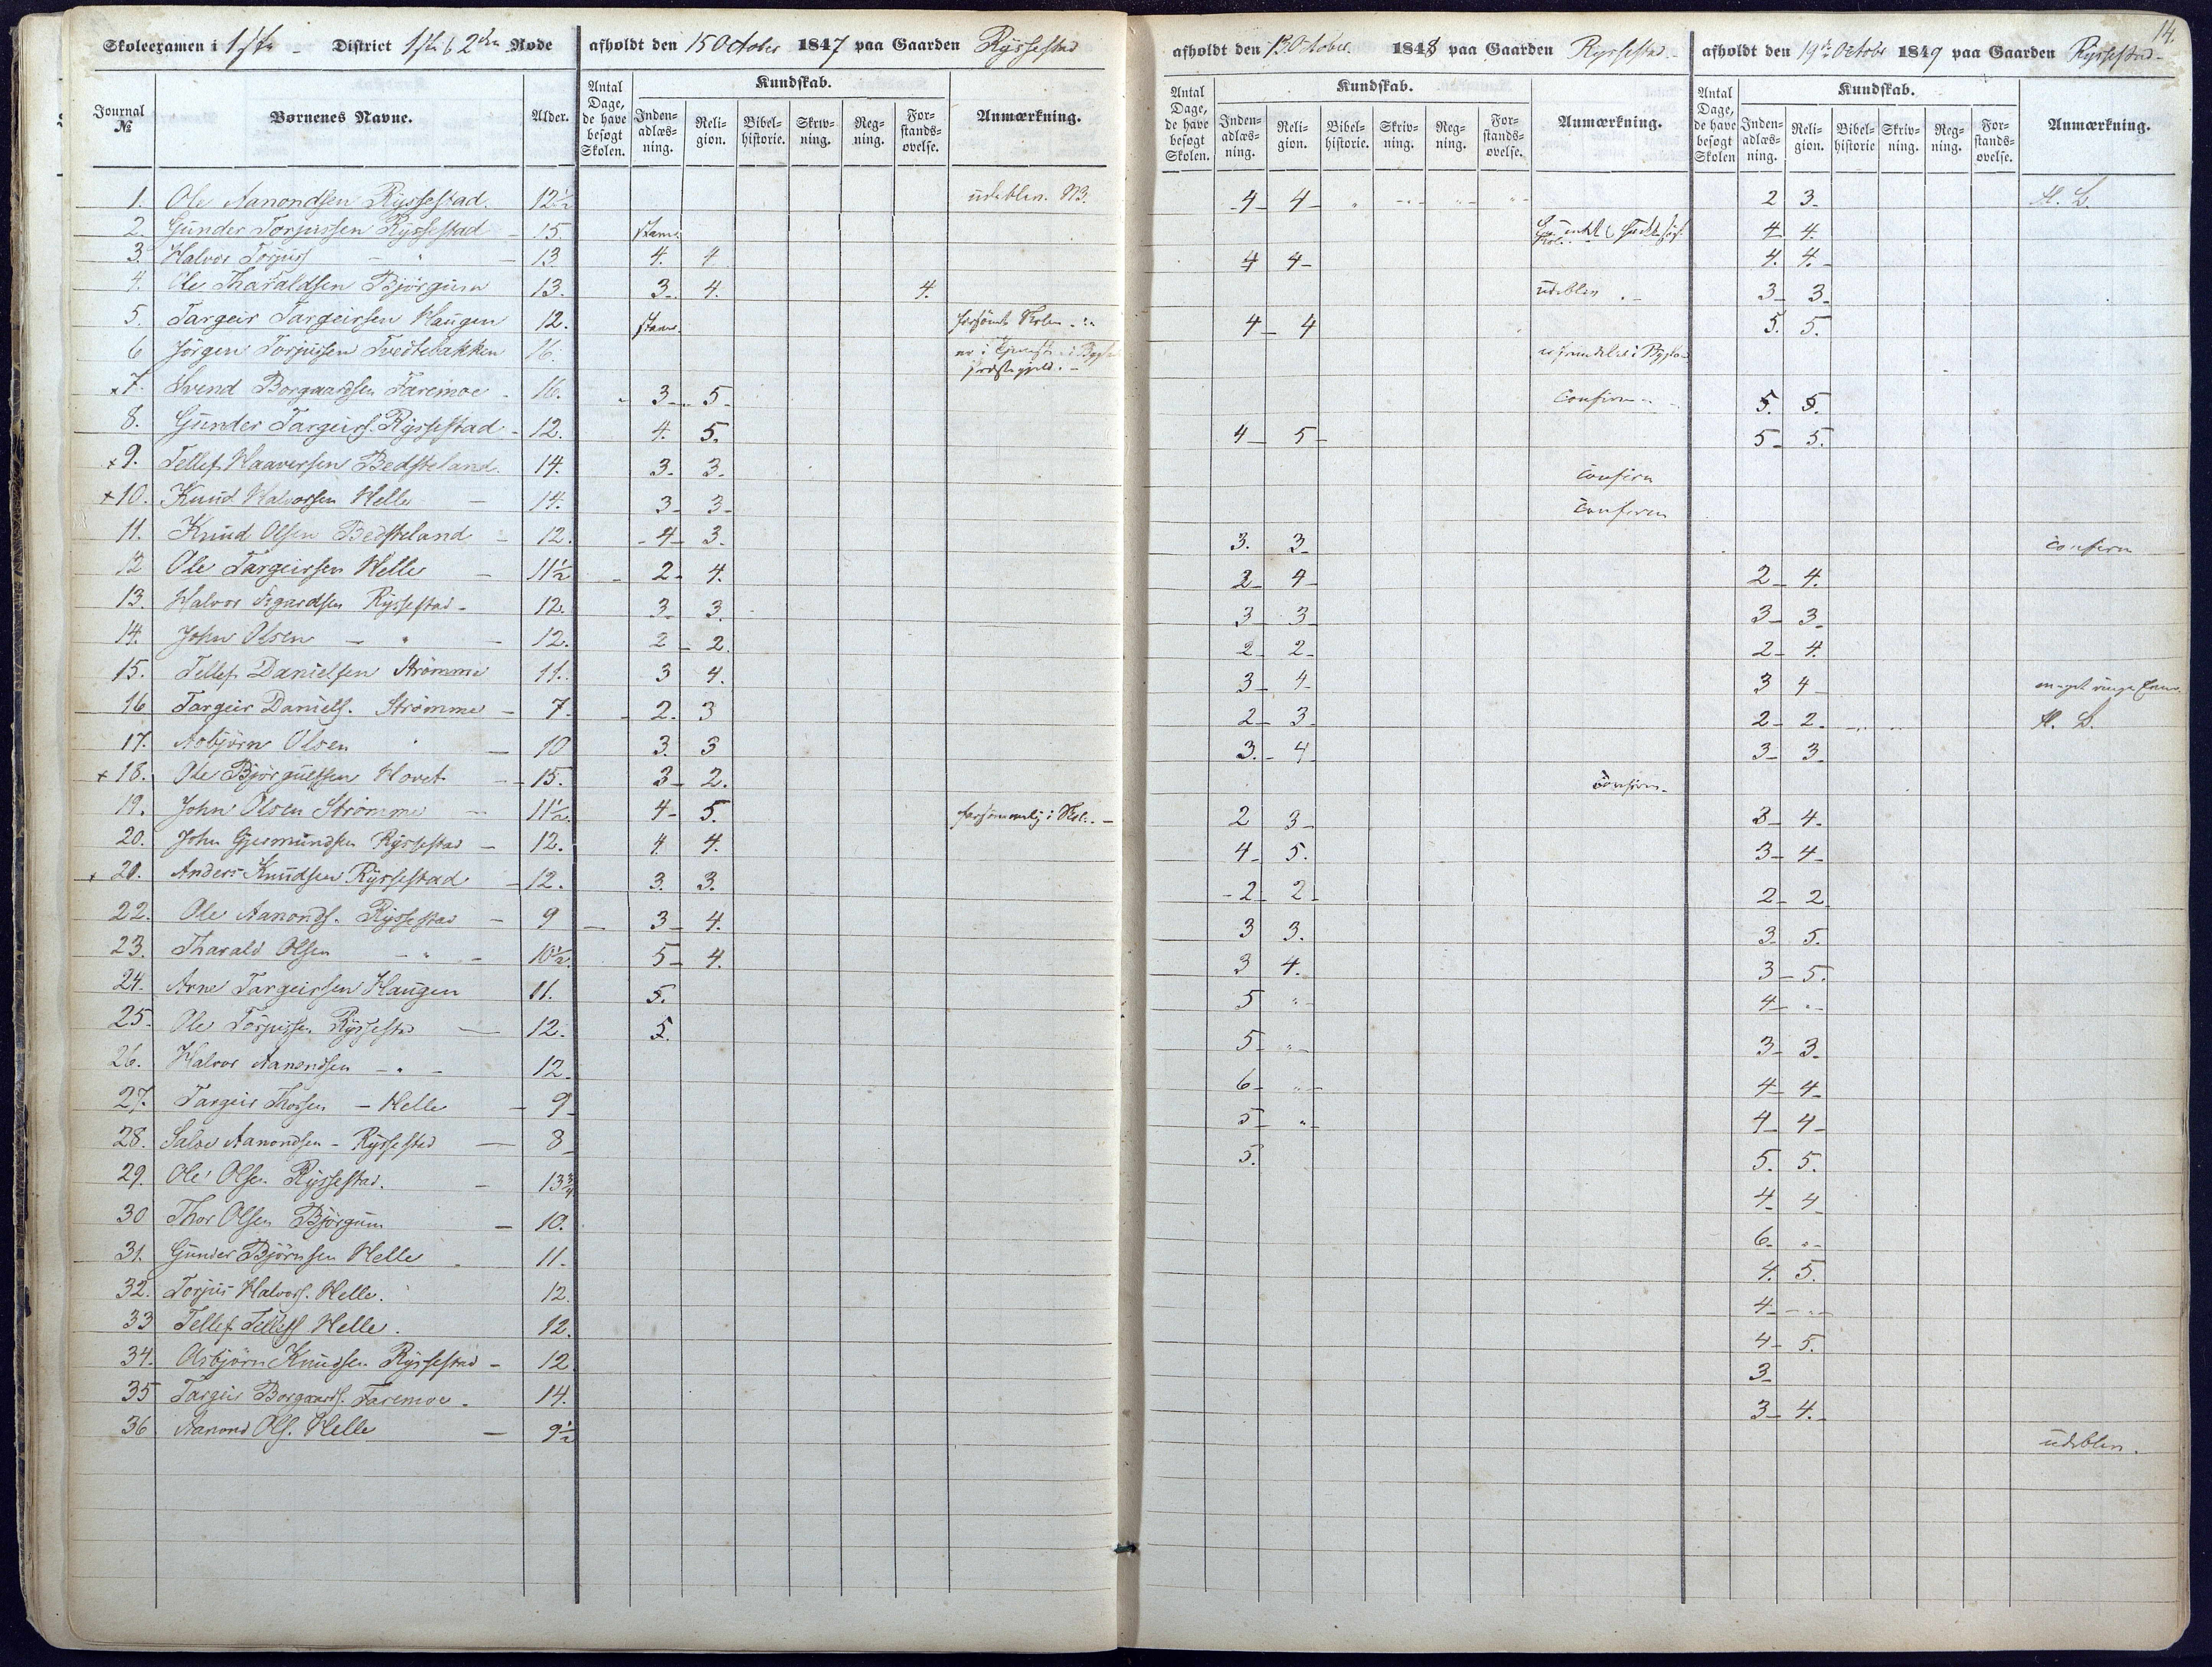 14.
Skoleexamen i 1ste District 1ste & 2den Rode afholdt den 15 October 1847 paa Gaarden Ryssestad afholdt den 13 October 1848 paa Gaarden Ryssestad afholdt den 19de October 1849 paa Gaarden Ryssestad
Journal № Børnenes Navne. Alder. Antal Dage, de have besøgt Skolen. Kundskab. Inden-adlæs-ning. Reli-gion. Bibel-historie. Skriv-ning. Reg-ning. For-stands-øvelse. Anmærkning. Antal Dage, de have besøgt Skolen. Kundskab. Inden-adlæs-ning. Reli-gion. Bibel-historie. Skriv-ning. Reg-ning. For-stands-øvelse. Anmærkning. Antal Dage, de have besøgt Skolen Kundskab. Inden-adlæs-ning. Reli-gion. Bibel-historie Skriv-ning. Reg-ning. For-stands-øvelse. Anmærkning.
1. Ole Aanondsen Ryssestad. 12½ udeblev. NB. 4 4 2 3
2. Gunder Torjussen Ryssestad 15 4 4.
3. Halvor Torjuss - " - 13 4. 4 4 4 4. 4.
4. Ole Tharaldsen Björgum 13. 3 4. 4. udeblev 3 3
5. Targeir Targeirsen Haugen 12. forsömt Skolen 4 4 5. 5.
6 Jörgen Torjussen Tvedtebakken 16. er i
x 7. Svend Borgaardsen Faremoe 16. 3 5 Confirm 5. 5.
8. Gunder Targeirs. Ryssestad 12. 4. 5. 4 5 5 5.
x 9. Tellef Haaversen Bedsteland. 14. 3. 3. confirm
x 10. Knud Halvorsen Helle 14. 3 3 confirm
11. Knud Olsen Bedsteland 12. 4 3. 3. 3 confirm
12 Ole Targeirsen Helle 11½ 2 4. 2 4 2 4.
13. Halvor Sigurdsen Ryssestad 12. 3 3. 3 3 3 3
14. John Olsen - " - 12. 2 2. 2 2 2 4.
15. Tellef Danielsen Strömme 11. 3 4. 3 4 3 4
16 Targeir Daniels. Strömme 7. 2. 3 2 3 2 2.
17. Asbjörn Olsen " 10 3. 3 3. 4 3 3
x 18. Ole Björgulfsen Hovet 15. 3 2. confirm.
19. John Olsen Strömme 11½ 4 5. forsömmelig i Skol. 2 3 3 4.
20. John Gjermundsen Ryssestad 12. 4. 4. 4 5. 3 4
x 21. Anders Knudsen Ryssestad 12. 3. 3. 2 2 2 2
22. Ole Aanonds. Ryssestad 9 3 4. 3 3. 3 5.
23. Tharald Olsen - " - 10½ 5 4. 3 4. 3 5.
24. Arne Targeirsen Haugen 11. 5. 5 " 4 "
25. Ole Torjussen Ryssestad 12. 5. 5 " 3 3
26. Halvor Aanondsen - " - 12. 6 " 4 4
27. Targeir Thorsen - Helle 9 5 " 4 4
28. Salve Aanondsen - Ryssestad 8 5. 5. 5.
29. Ole Olsen Ryssestad. 13¾ 4 4
30 Thor Olsen Björgum 10. 6. "
31. Gunder Björnsen Helle 11. 4. 5.
32. Torjus Halvors. Helle. 12. 4 "
33 Tellef Tellefs Helle. 12. 4 5.
34. Asbjörn Knudsen Ryssestad 12. 3
35 Targeir Borgaards. Faremoe. 14. 3 4.
36 Aanond Ols. Helle 9½ udeblev.